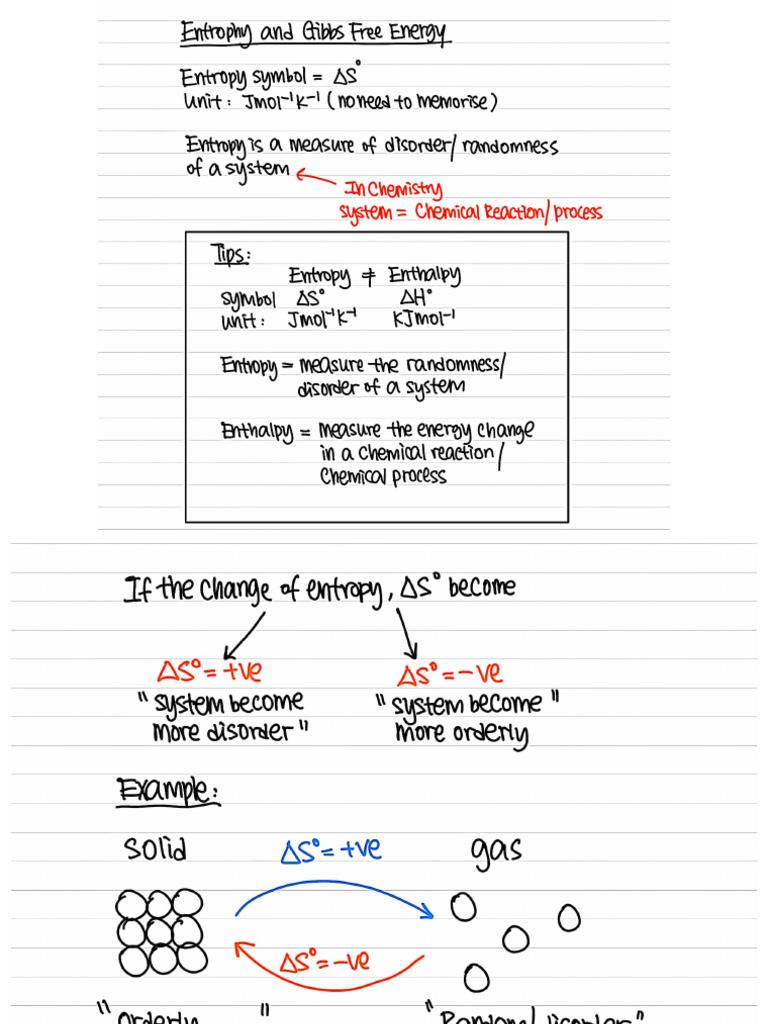 Entrophy and Gibbs Free Energy
Entropy symbol = ΔS°
Unit : Jmol⁻¹K⁻¹ (no need to memorise)
Entropy is a measure of disorder/ randomness
of a system
In Chemistry
system = Chemical Reaction/ process
Tips:
Entropy ≠ Enthalpy
symbol ΔS° ΔH°
unit : Jmol⁻¹K⁻¹ KJmol⁻¹
Entropy = measure the randomness/
disorder of a system
Enthalpy = measure the energy change
in a chemical reaction/
Chemical process
If the change of entropy, ΔS° become
ΔS° = +ve ΔS° = -ve
"system become "system become"
more disorder" more orderly
Example:
solid ΔS° = +ve gas
ΔS° = -ve
"orderly " "Random/disorder"